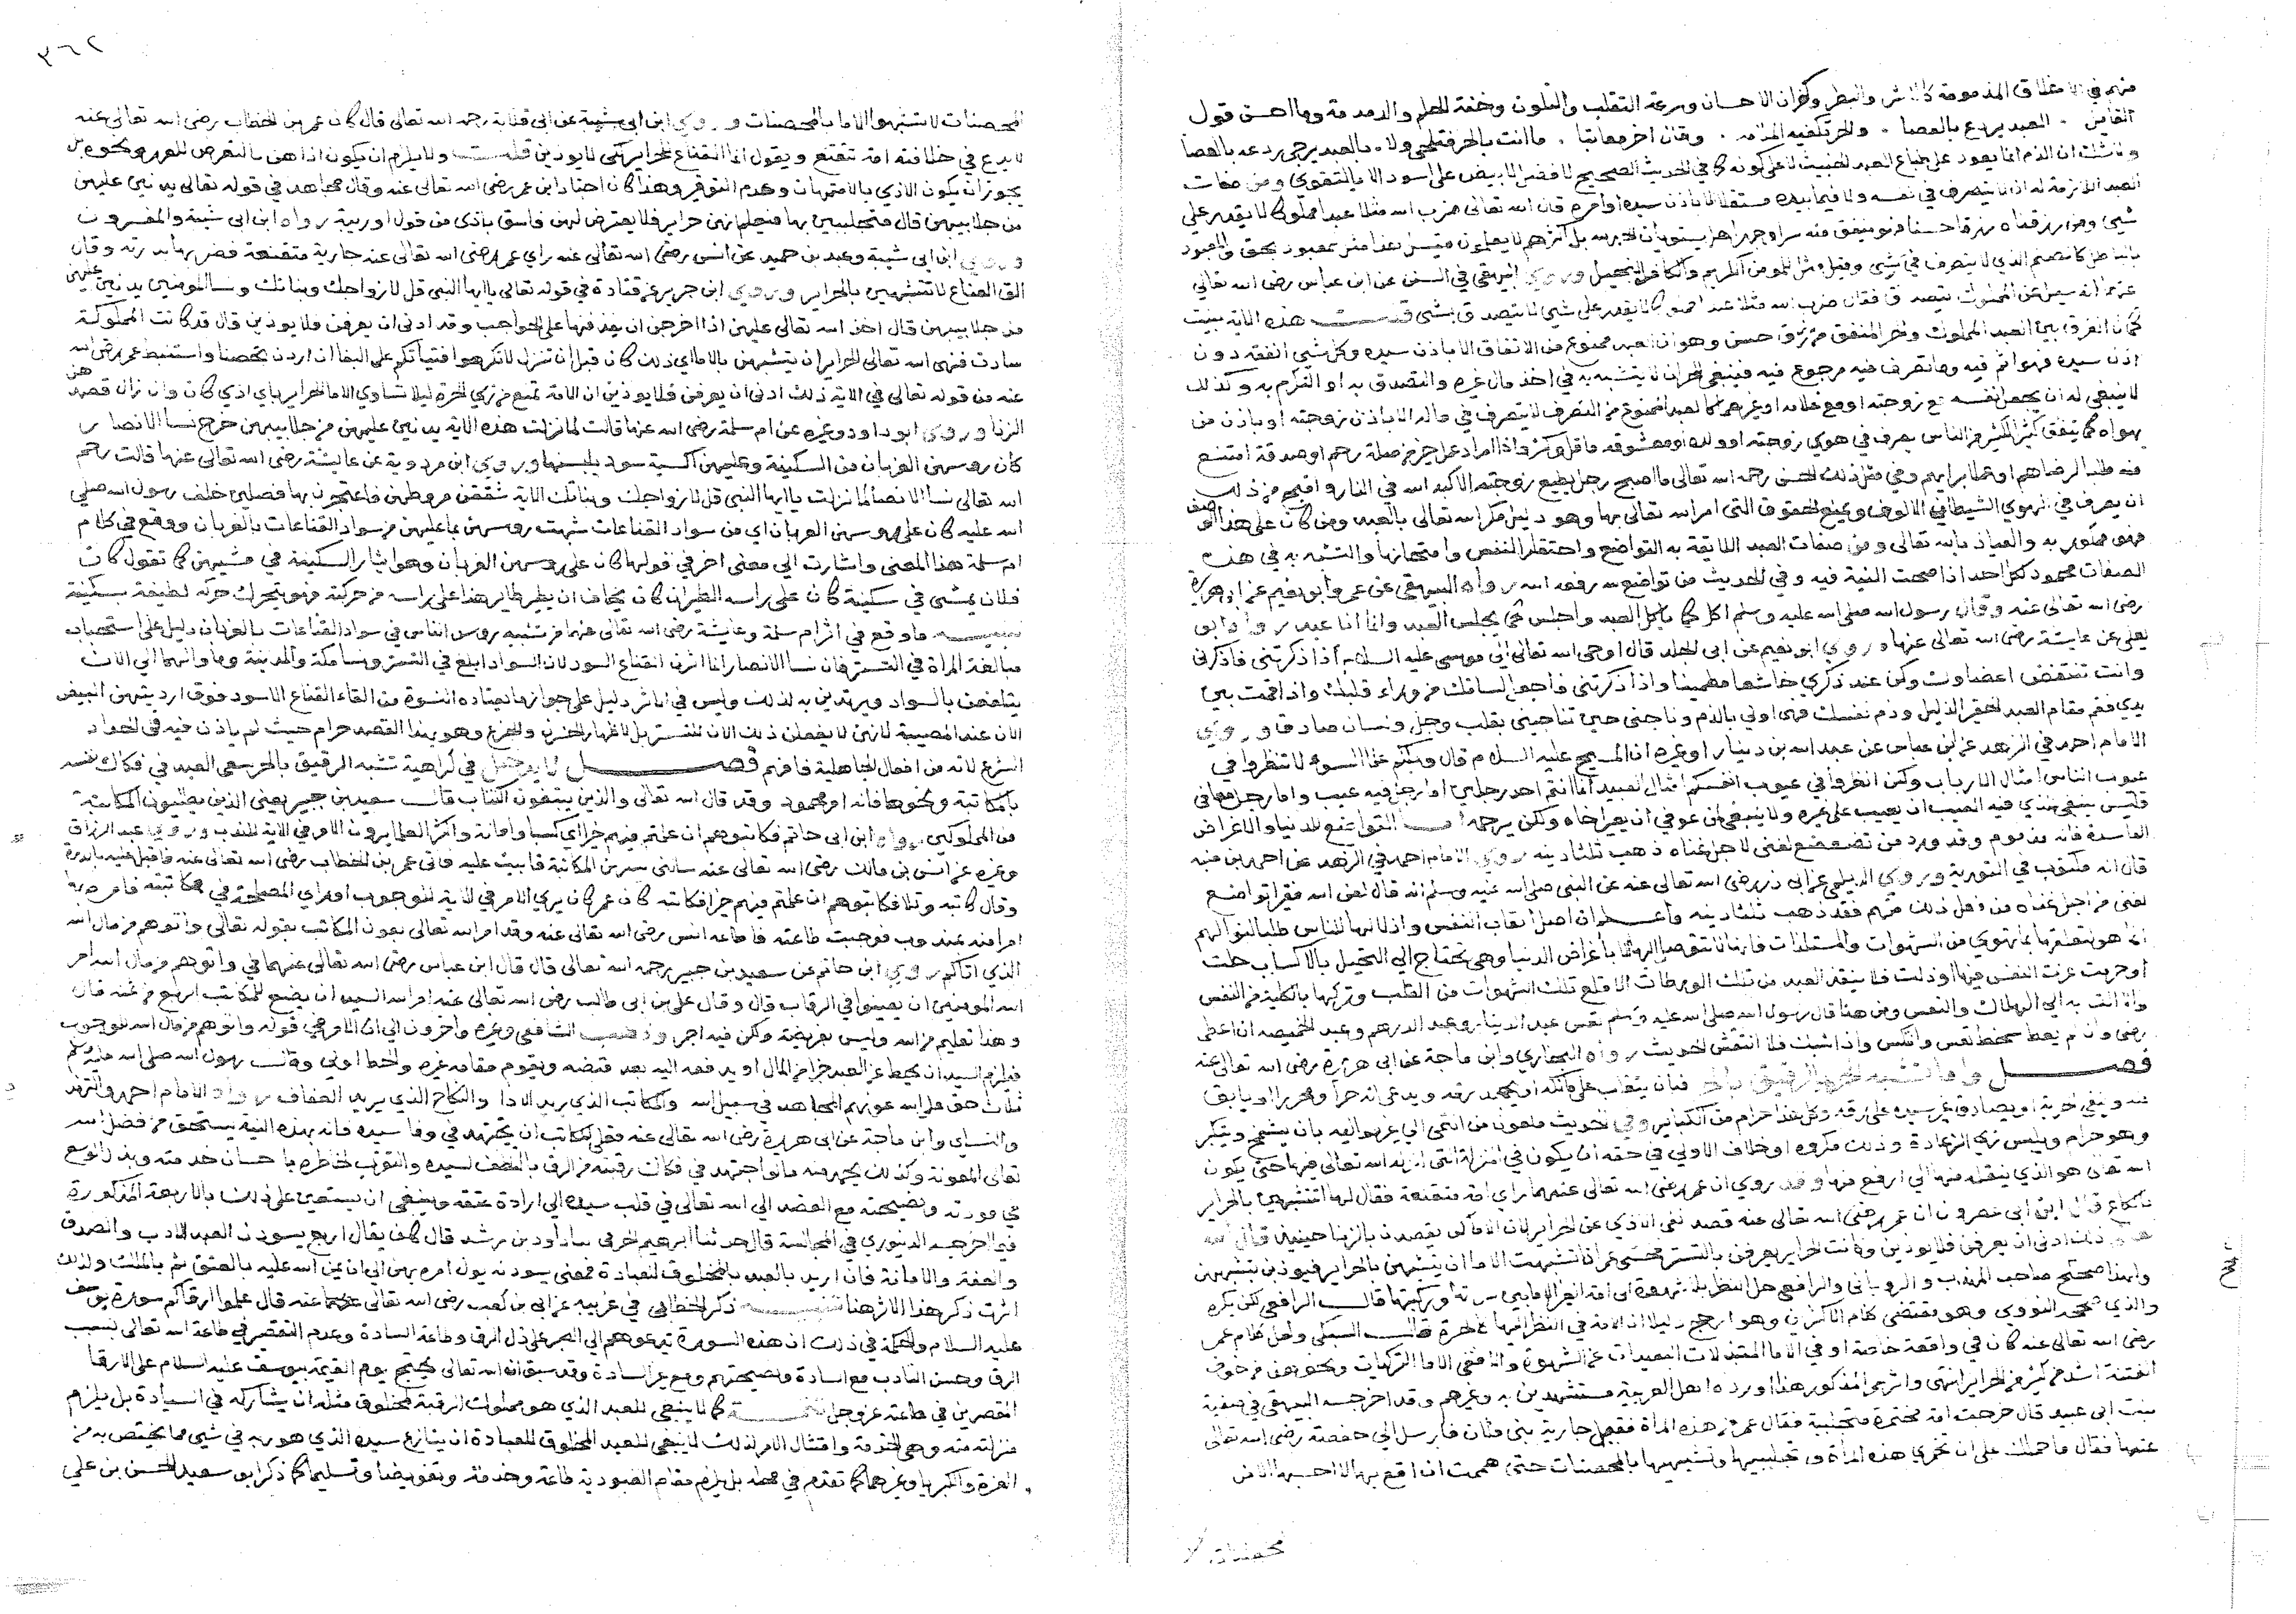 منهم في الاخلاق المذمومة كالاشر والبطر وكفران الاحسان وسرعة التقلب والتلون وخفة الحلم والدمدمة وما احسن قول
القايل . العبد يردع بالعصا . والحر تكفيه الملامه . وقال اخر معاتبا . ما انت بالحر فتلحى ولا . بالعبد يرجى ردعه بالعصا
ولا شك ان الذم انما يعود على طباع العبد الخبيث لا على كونه كما في الحديث الصحيح لا فضل لابيض على اسود الا بالتقوى ومن صفات
العبد اللازمة له انه لا يتصرف في نفسه ولا فيما بيده مستقلا الا باذن سيده او امره قال الله تعالى ضرب الله مثلا عبدا مملوكا لا يقدر على
شيئ ومن رزقناه رزقا حسنا فهو ينفق منه سرا وجهرا هل يستوون الحمد لله بل اكثرهم لا يعلمون فقيل هذا مثل لمعبود بحق والمعبود
بالباطل كالصنم الذي لا يتصرف في شئ وقيل مثل للمومن الكريم والكافر البخيل وروى البيهقي في السنن عن ابن عباس رضى الله تعالى
عنهما انه سيل عن المملوك يتصدق فقال ضرب الله مثلا عبدا مملوكا لا يقدر على شيئ لا يتصدق بشئ قلت هذه الاية بينت
كمال الفرق بين العبد المملوك والحر المنفق من رزق حسن وهو ان العبد ممنوع من الانفاق الا باذن سيده وكل شيئ انفقه دون
اذن سيده فهو اثم فيه وما تصرف فيه مرجوع فيه فينبغي للحر ان لا يتشبه به في اخذ مال غيره والتصدق به او التكرم به وكذلك
لا ينبغي له ان يجعل نفسه مع زوجته او مع غلامه او غيرهما كالعبد الممنوع من التصرف لا يتصرف في ماله الا باذن زوجته او باذن من
يهواه كما يتفق كثيرا لكثير من الناس يصرف في هوى زوجته او ولده او معشوقه ما قل وكثر واذا اراد عمل خير من صلة رحم او صدقة امتنع
منه طلبا لرضاهم او عملا برايهم وفي مثل ذلك الحسن رحمه الله تعالى ما اصبح رجل يطيع زوجته الا كبه الله في النار واقبح من ذلك
ان يصرف في الهوى الشيطاني الالوف ويمنع الحقوق التي امر الله تعالى بها وهو دليل مكر الله تعالى بالعبد ومن كان على هذا الوصف
فهو ممكور به والعياذ بالله تعالى ومن صفات العبد اللايقة به التواضع واحتقار النفس وامتحانها والتشبه به في هذه
الصفات محمود لكل احد اذا صحت النية فيه وفي الحديث من تواضع لله رفعه الله رواه البيهقي عن عمر وابو نعيم عن ابي هريرة
رضى الله تعالى عنه وقال رسول الله صلى الله عليه وسلم اكل كما ياكل العبد واجلس كما يجلس العبد وانما انا عبد رواه ابو
يعلى عن عايشة رضى الله تعالى عنها وروى ابو نعيم عن ابى الجلد قال اوحى الله تعالى الى موسى عليه السلام اذا ذكرتني فاذكرني
وانت تنتفض اعضاوك وكن عند ذكري خاشعا مطمينا واذا ذكرتني فاجعل لسانك من وراء قلبك واذا قمت بين
يدي فقم مقام العبد الحقير الذليل وذم نفسك فهى اولى بالذم وناجني حين تناجيني بقلب وجل ولسان صادق وروى
الامام احمد في الزهد عن عبد الله بن دينار او غيره ان المسيح عليه السلام قال لا تنظروا في
عيوب الناس امثال الارباب ولكن انظروا في عيوب انفسكم امثال العبيد
فليس ينبغي للذي فيه العيب ان يعيب على غيره ولا ينبغي لمن عوفي ان يعير اخاه ولكن يرحمه اما التواضع للدنيا والاغراض
الفاسدة فانه مذموم وقد ورد من تضعضع لغني لاجل غناه ذهب ثلثا دينه روى الامام احمد في الزهد عن
قال انه مكتوب في التورية وروى الديلمي عن ابى ذر رضى الله تعالى عنه عن النبى صلى الله عليه وسلم انه قال لعن الله فقيرا تواضع
لغني من اجل غناه من فعل ذلك منهم فقد ذهب ثلثا دينه واعلم ان اصل اتعاب النفس واذلالها للناس طلبا لنوالهم
انما هو تعلقها بما تهوى من الشهوات والمستلذات فانها لا تتوصل اليها الا باغراض الدنيا وهى تحتاج الى التحصيل بالاكساب حلت
او حرمت عزت النفس فيها او ذلت فلا ينقذ العبد من تلك الورطات الا قلع تلك الشهوات من القلب وتركها بالكلية من النفس
والا التفت به الى الهلاك والتعس ومن هنا قال رسول الله صلى الله عليه وسلم تعس عبد الدينار وعبد الدرهم وعبد الخميصة ان اعطى
رضى وان لم يعط سخط تعس وانتكس واذا شيك فلا انتقش الحديث رواه البخاري وابن ماجة عن ابى هريرة رضى الله تعالى عنه
فصل واما تشبه الحر الرقيق بالحر فبان يتغلب على مالكه او يجحد رقه ويدعي انه حر او محررا او يابق
منه ويدعى الحرية او يصادق غير سيده على رقه وكل هذا حرام من الكباير وفي الحديث ملعون من انتمى الى غير مواليه بان يشمخ ويتكبر
وهو حرام ويلبس زي الزهادة وذلك مكروه او خلاف الاولى في حقه ان يكون في المنزلة التى انزله الله تعالى فيها حتى يكون
الله تعالى هو الذي ينقله منها الى ارفع منها وقد روي ان عمر رضى الله تعالى عنه راى امة متقنعة فقال لها اتتشبهين بالحراير
يا لكاع قال ابن ابى عصرون ان عمر رضى الله تعالى عنه قصد نفى الاذى عن الحراير لان الاما كن يقصدن بالزنا حينيذ قال الله
تعالى ذلك ادنى ان يعرفن فلا يوذين وكانت الحراير يعرفن بالتستر فخشى عمر انه اذا تشبهت الاما ان يتشبهن بالحراير فيوذين لتشبههن
والذي صححه النووى وهو مقتضى كلام الاكثرين وهو ارجح دليلا ان الامة في النظر اليها كالحرة قال السبكى ولعل كلام عمر
رضى الله تعالى عنه كان في واقعة خاصة او في الاما المتبذلات البعيدات عن الشهوة والا ففى الاما التركيات ونحوهن من خوف
الفتنة اشد من كثير من الحراير انتهى واثر عمر المذكور هذا اورده اهل العربية مستشهدين به وغيرهم وقد اخرجه البيهقى في صفية
بنت ابى عبيد قال خرجت امة مختمرة متجلببة فقال عمر من هذه المراة فقيل جارية بنى فلان فارسل الى حفصة رضى الله تعالى
عنها فقال ما حملك على ان تخمري هذه المراة وتجلببيها وتشبهيها بالمحصنات حتى هممت ان اقع بها لا احسبها الا من
المحصنات
٣٦٢
المحصنات لا تشبهوا الاما بالمحصنات وروى ابن ابى شيبة عن ابى قلابة رحمه الله تعالى قال كان عمر بن الخطاب رضى الله تعالى عنه
لا يدع في خلافته امة تتقنع ويقول انما القناع للحراير لكي لا يوذين قلت ولا يلزم ان يكون اذاهن بالتعرض للعهر ونحوه بل
يجوز ان يكون الاذي بالامتهان وعدم التوقير وهذا كان اجتهاد ابن عمر رضى الله تعالى عنه وقال مجاهد في قوله تعالى يدنين عليهن
من جلابيبهن قال متجلببين بها فيعلم انهن حراير فلا يعترض لهن فاسق باذى من قول او ريبة رواه ابن ابى شيبة والمفسرون
وروى ابن ابى شيبة وعبد بن حميد عن انس رضى الله تعالى عنه راى عمر رضى الله تعالى عنه جارية متقنعة فضربها بدرته وقال
القى القناع لا تتشبهين بالحراير وروى ابن جرير عن قتادة في قوله تعالى ياايها النبى قل لازواجك وبناتك ونسا المومنين يدنين عليهن
من جلابيبهن قال اخذ الله تعالى عليهن اذا خرجن ان يقذفنها على الحواجب وقد ادنى ان يعرفن فلا يوذين قال قد كانت المملوكة
عنه من قوله تعالى في الاية ذلك ادنى ان يعرفن فلا يوذين ان الامة تمنع من زي الحرة ليلا تساوي الاما الحراير باي اذي كان وان زال قصدهن
الزنا وروى ابو داود وغيره عن ام سلمة رضى الله عنها قالت لما نزلت هذه الاية يدنين عليهن من جلابيبهن خرج نسا الانصار
كان روسهن الغربان من السكينة وعليهن اكسية سود يلبسنها وروى ابن مردوية عن عايشة رضى الله تعالى عنها قالت رحم
الله تعالى نسا الانصار لما نزلت ياايها النبى قل لازواجك وبناتك الاية شققن مروطهن فاعتجرن بها فصلين خلف رسول الله صلى
الله عليه كان على روسهن الغربان اي من سواد القناعات شبهت روسهن بما عليهن من سواد القناعات بالغربان ووقع في كلام
ام سلمة هذا المعنى واشارت الى معنى اخر في قولها كان على روسهن الغربان وهو ايثار السكينة في مشيهن كما تقول كان
فلان يمشي في سكينة كان على راسه الطير ان كان يخاف ان يطير طاير هذا على راسه من حركته فهو يتحرك حركة لطيفة بسكينة
تنبيه ما وقع في اثر ام سلمة وعايشة رضى الله تعالى عنهما من تشبيه روس الناس في سواد القناعات بالغربان دليل على استحباب
مبالغة المراة في التستر فان نسا الانصار انما اثرن القناع السود لان السواد ابلغ في التستر ونسا مكة والمدينة وما والاهما الى الان
يتلفعن بالسواد ويرتدين به لذلك وليس في الاثر دليل على جواز ما يعتاده النسوة من القاء القناع الاسود فوق ارديتهن البيض
الان عند المصيبة لانهن لا يفعلن ذلك الان للتستر بل لاظهار الحزن والجزع وهو بهذا القصد حرام حيث لم ياذن فيه في الحداد
الشرع لانه من افعال الجاهلية فافهم فصل لا يدخل في كراهية تشبه الرقيق بالحر سعى العبد في فكاك نفسه
بالمكاتبة ونحوها فانه امر محمود وقد قال الله تعالى والذين يبتغون الكتاب قال سعيد بن جبير يعنى الذين يطلبون المكاتبة
من المملوكين رواه ابن ابى حاتم فكاتبوهم ان علمتم فيهم خيرا اي كسبا وامانة واكثر العلما يرون الامر في الاية للندب وروى عبد الرزاق
وغيره عن انس بن مالك رضى الله تعالى عنه سالنى سيرين المكاتبة فابيت عليه فاتى عمر بن الخطاب رضى الله تعالى عنه فاقبل عليه بالدرة
وقال كاتبه وتلا فكاتبوهم ان علمتم فيهم خيرا فكاتبه كان عمر كان يرى الامر في الاية للوجوب او راى المصلحة في مكاتبته فامره بها
امرا منه لمندوب فوجبت طاعته فاطاعه انس رضى الله تعالى عنه وقد امر الله تعالى بعون المكاتب بقوله تعالى واتوهم من مال الله
الذي اتاكم روى ابن حاتم عن سعيد بن جبير رحمه الله تعالى قال قال ابن عباس رضى الله تعالى عنهما في واتوهم من مال الله امر
الله المومنين ان يعينوا في الرقاب قال وقال على بن ابى طالب رضى الله تعالى عنه امر الله السيد ان يضع للمكاتب الربع من ثمنه قال
وهذا تعليم من الله وليس بفريضة ولكن فيه اجر وذهب الشافعي وغيره واخرون الى ان الامر في قوله واتوهم من مال الله للوجوب
فيلزم السيد ان يحط عن العبد جزا من المال او يدفعه اليه بعد قبضه ويقوم مقامه غيره والحط اولى وقال رسول الله صلى الله عليه وسلم
ثلاث حق على الله عونهم المجاهد في سبيل الله والمكاتب الذي يريد الادا والناكح الذي يريد العفاف رواه الامام احمد والترمذي
والنساي وابن ماجة عن ابى هريرة رضى الله تعالى عنه فعلى المكاتب ان يجتهد في وفا سيده فانه بهذه النية يستحق من فضل الله
تعالى المعونة وكذلك يجب منه ما لو اجتهد في فكاك رقبته من الرق بالتلطف لسيده والتقرب لخاطره باحسان خدمته وبذل الوسع
في مودته ونصيحته مع القصد الى الله تعالى في قلب سيده الى ارادة عتقه وينبغى ان يستعين على ذلك بالاربعة المذكورة
فيما اخرجه الدينوري في المجالسة قال حدثنا ابرهيم الحربى سا داود بن رشد قال كان يقال اربع يسودن العبد الادب والصدق
والعفة والامانة فان اريد بالعبد المخلوق للعبادة فمعنى يسودنه يول امره بهن الى ان يمن الله عليه بالعتق ثم بالملك ولذلك
اثرت ذكر هذا الاثر هنا تنبيه ذكر الخطابي في غريبه عن ابى بن كعب رضى الله تعالى عنه قال علموا ارقاكم سورة يوسف
عليه السلام والحكمة في ذلك ان هذه السورة تدعوهم الى الصبر على ذل الرق وطاعة السادة وعدم التقصير في طاعة الله تعالى بسبب
الرق وحسن التادب مع السادة ونصيحتهم ومع غير السادة وقد سبق ان الله تعالى يحتج يوم القيمة بيوسف عليه السلام على الارقا
المقصرين في طاعته عز وجل تتمة كما لا ينبغى للعبد الذي هو مملوك الرقبة لمخلوق مثله ان يشاركه في السيادة بل يلزم
منزلته منه وهى الخدمة وامتثال الامر لذلك لا ينبغي للعبد المخلوق للعبادة ان ينازع سيده الذي هو ربه في شيئ مما يختص به من
العزة والكبريا وغيرهما كما تقدم في محله بل يلزم مقام العبودية طاعة وخدمة وتفويضا وتسليما كما ذكر ابو سعيد الحسن بن على